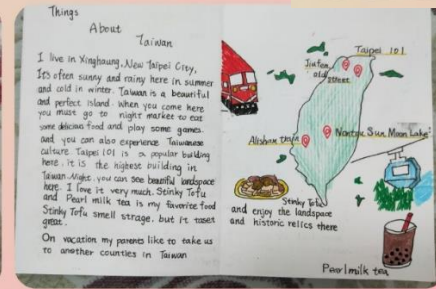 Things
About
Taiwan
I live in Xinghaung, New Taipei City,
It's often sunny and rainy here in summer
and cold in winter. Taiwan is a beautiful
and perfect island. When you come here
you must go to night market to eat
some delicious food and play some games.
and you can also experience Taiwanese
culture. Taipei 101 is a popular building
here. it is the highest building in
Taiwan. Night. you can see beautiful landspace
here. I love it very much. Stinky Tofu
and Pearl milk tea is my favorite food
Stinky Tofu smell strage. but it taset
great.
On vacation my parents like to take us
to another counties in Taiwan
Taipei 101
Jiufen
old street
Alishan train
Nantou Sun Moon Lake
Stinky Tofu
and enjoy the landspace
and historic relics there
Pearl milk tea